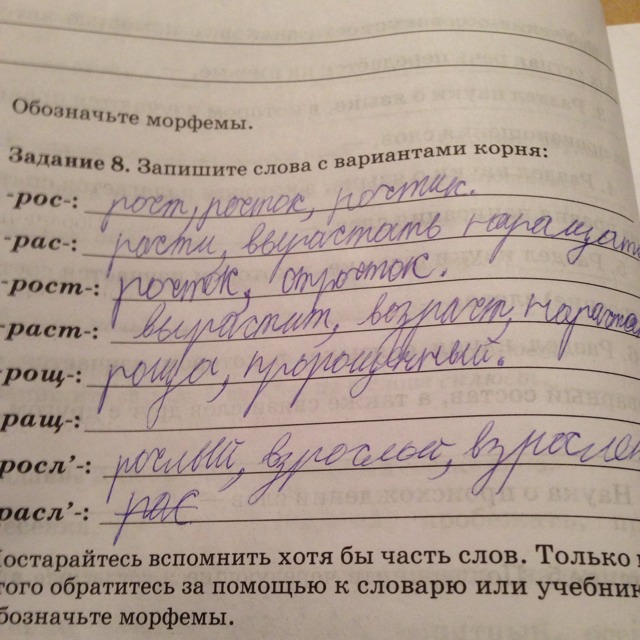 Обозначьте морфемы.
Задание 8. Запишите слова с вариантами корня:
-рос-: рост, росток, ростик.
-рас-: расти, вырастать наращать
-рост-: росток, отросток.
-раст-: вырастит, возраст, нараста
-рощ-: роща, пророщенный.
ращ-:
росл’-: рослый, взрослый, взрослен
расл’-: рас
Постарайтесь вспомнить хотя бы часть слов. Только
того обратитесь за помощью к словарю или учебник
обозначьте морфемы.